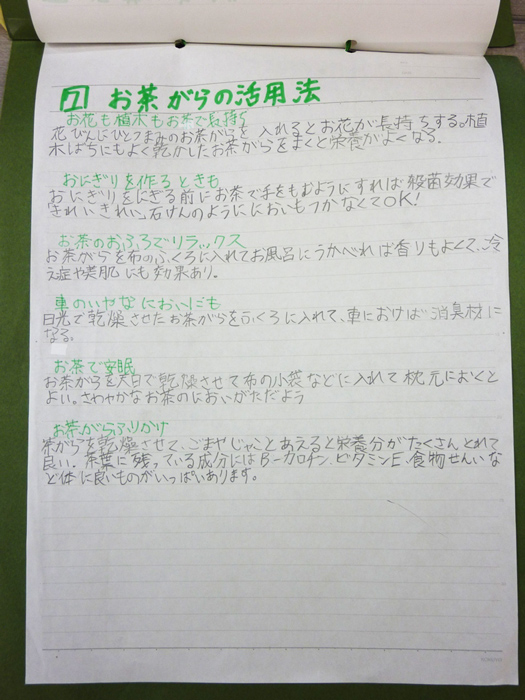 7 お茶がらの活用法
お花も植木もお茶で長持ち
花びんにひとつまみのお茶がらを入れるとお花が長持ちする。植
木ばちにもよく乾かしたお茶がらをまくと栄養がよくなる。
おにぎりを作るときも
おにぎりをにぎる前にお茶で手をもむようにすれば殺菌効果で
きれいきれい。石けんのようににおいもつかなくてOK!
お茶のおふろでリラックス
お茶がらを布のふくろに入れてお風呂にうかべれば香りもよくて、冷
え症や美肌にも効果あり。
車のいやなにおいにも
日光で乾燥させたお茶がらをふくろに入れて、車におけば消臭材に
なる。
お茶で安眠
お茶がらを天日で乾燥させて布の小袋などに入れて枕元におくと
よい。さわやかなお茶のにおいがただよう
お茶がらふりかけ
茶がらを乾燥させて、ごまやじゃことあえると栄養分がたくさんとれて
良い。茶葉に残っている成分にはB-カロチン、ビタミンE、食物せんいな
ど体に良いものがいっぱいあります。